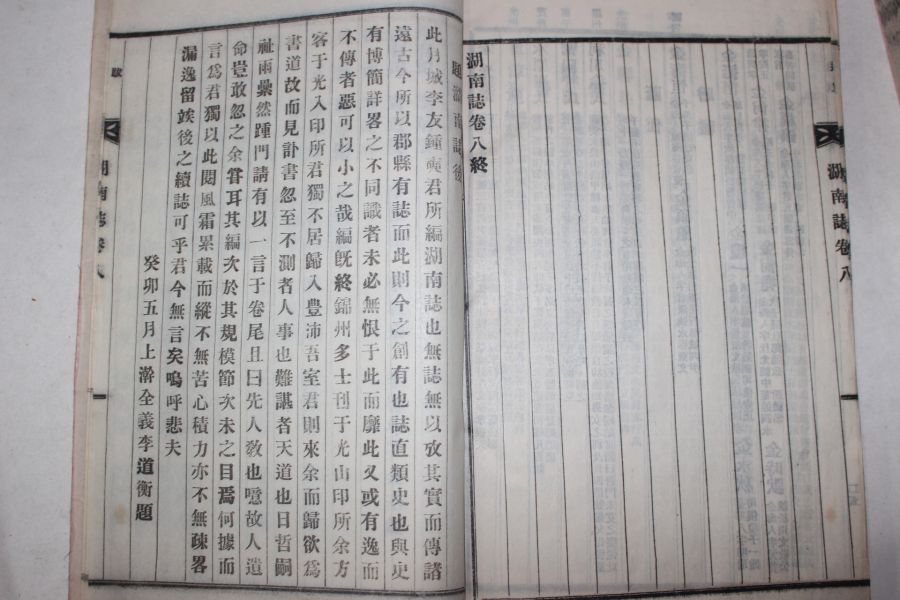 湖南誌卷八
湖南誌卷八終
題湖南誌後
此月城李友鍾奭君所編湖南誌也無誌無以攷其實而傳諸
遠古今所以郡縣有誌而此則今之創有也誌直類史也與史
有博簡詳畧之不同識者未必無恨于此而靡此又或有逸而
不傳者惡可以小之哉編旣終錦州多士刊于光山印所余方
客于光入印所君獨不居歸入豊沛吾室君則來余而歸欲爲
書道故而見訃書忽至不測者人事也難諶者天道也日哲嗣
祉雨纍然踵門請有以一言于卷尾且曰先人敎也噫故人遺
命豈敢忽之余耳其編次於其規模節次未之目焉何據而
言爲君獨以此閱風霜累載而縱不無苦心積力亦不無疎畧
漏逸留竢後之續誌可乎君今無言矣嗚呼悲夫
癸卯五月上澣全義李道衡題
跋
湖南誌卷八